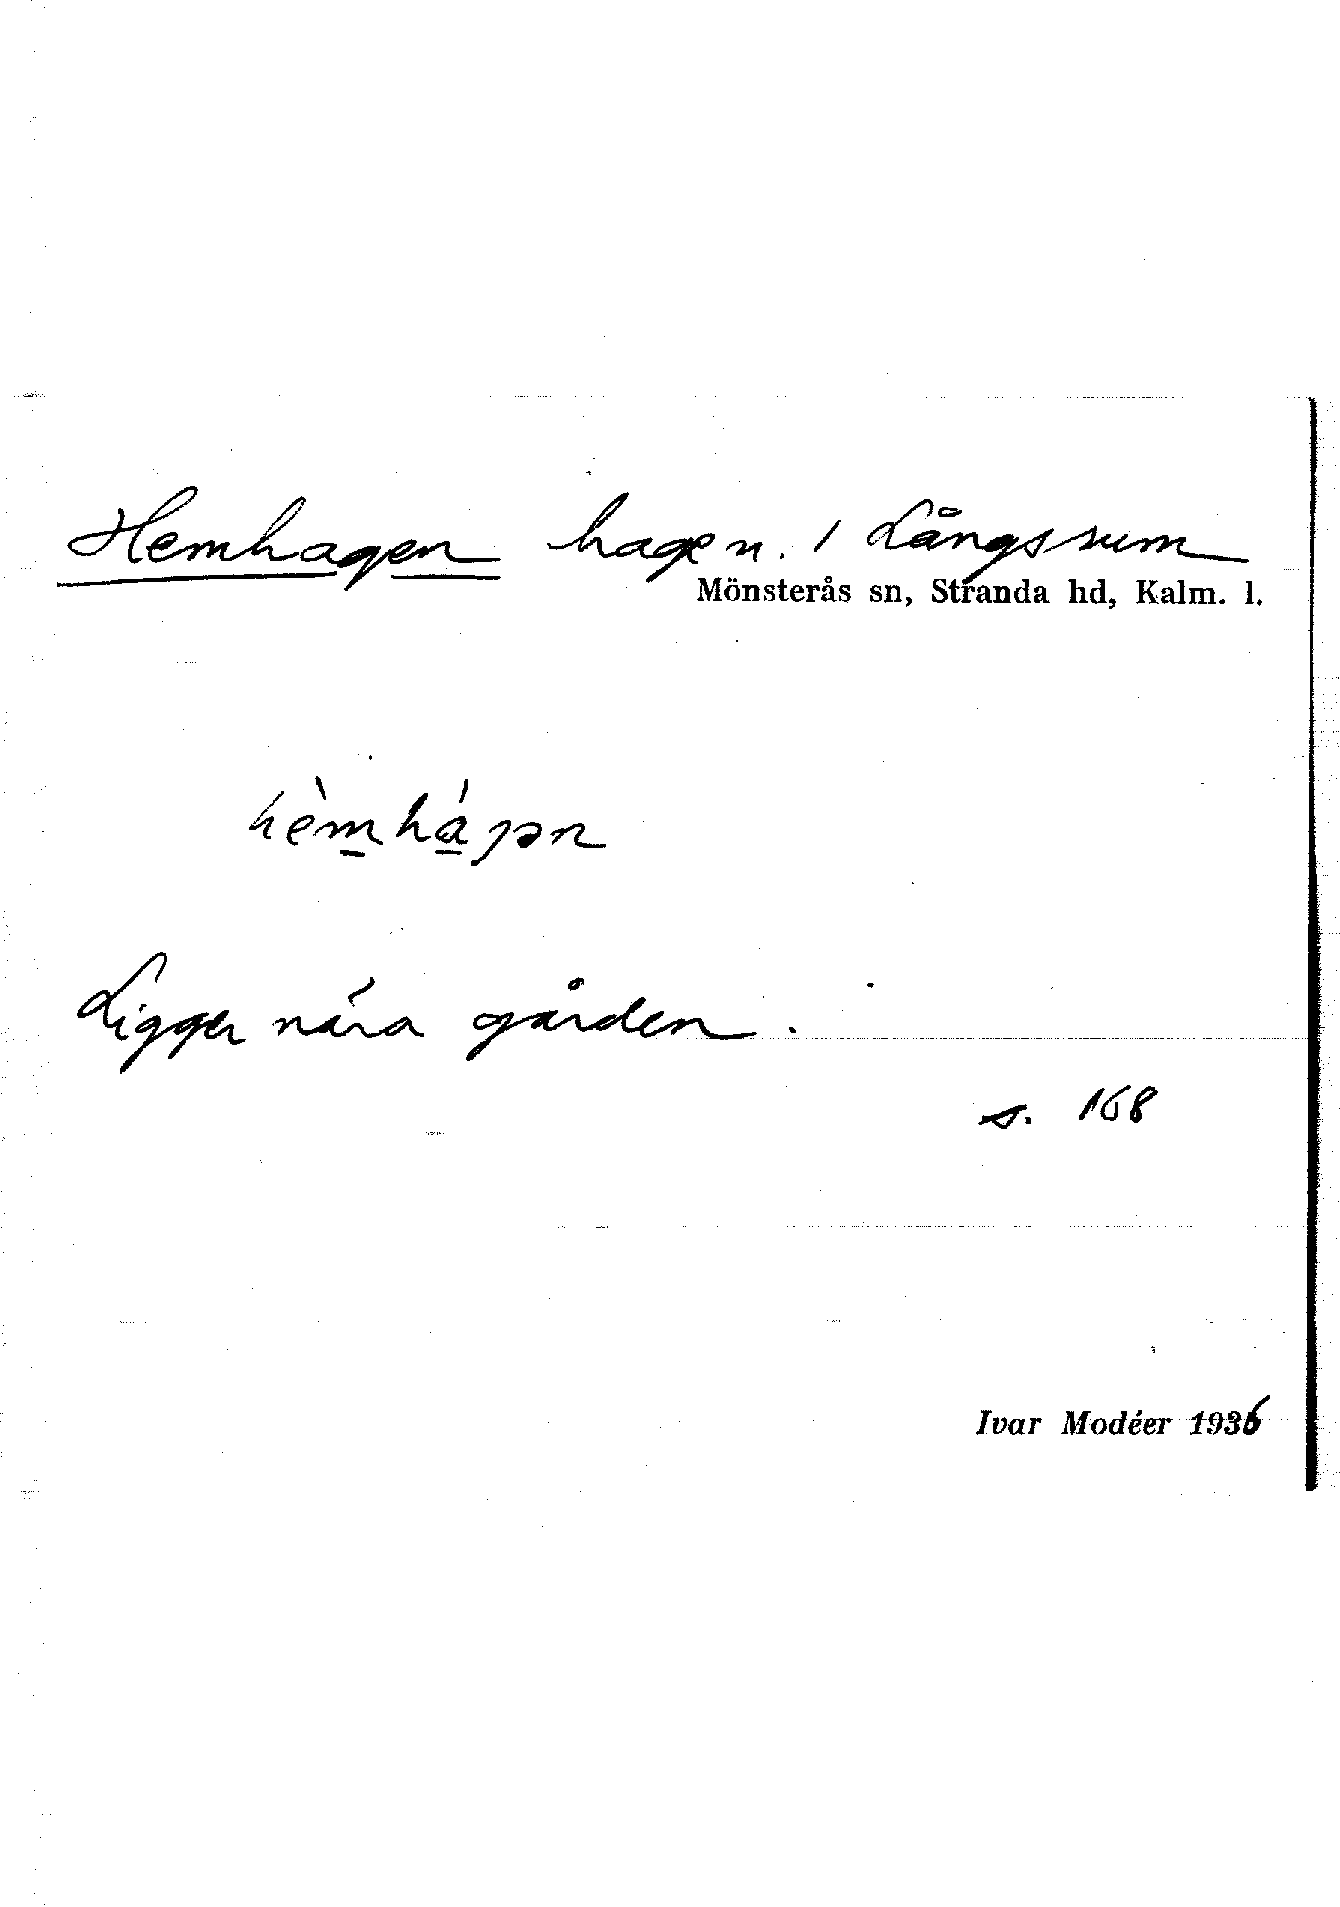 Hemhagen hage n. 1 Långsrum
Mönsterås sn, Stranda hd, Kalm. l.
hèmhápən
Ligger nära gården.
s. 168
Ivar Modéer 1936